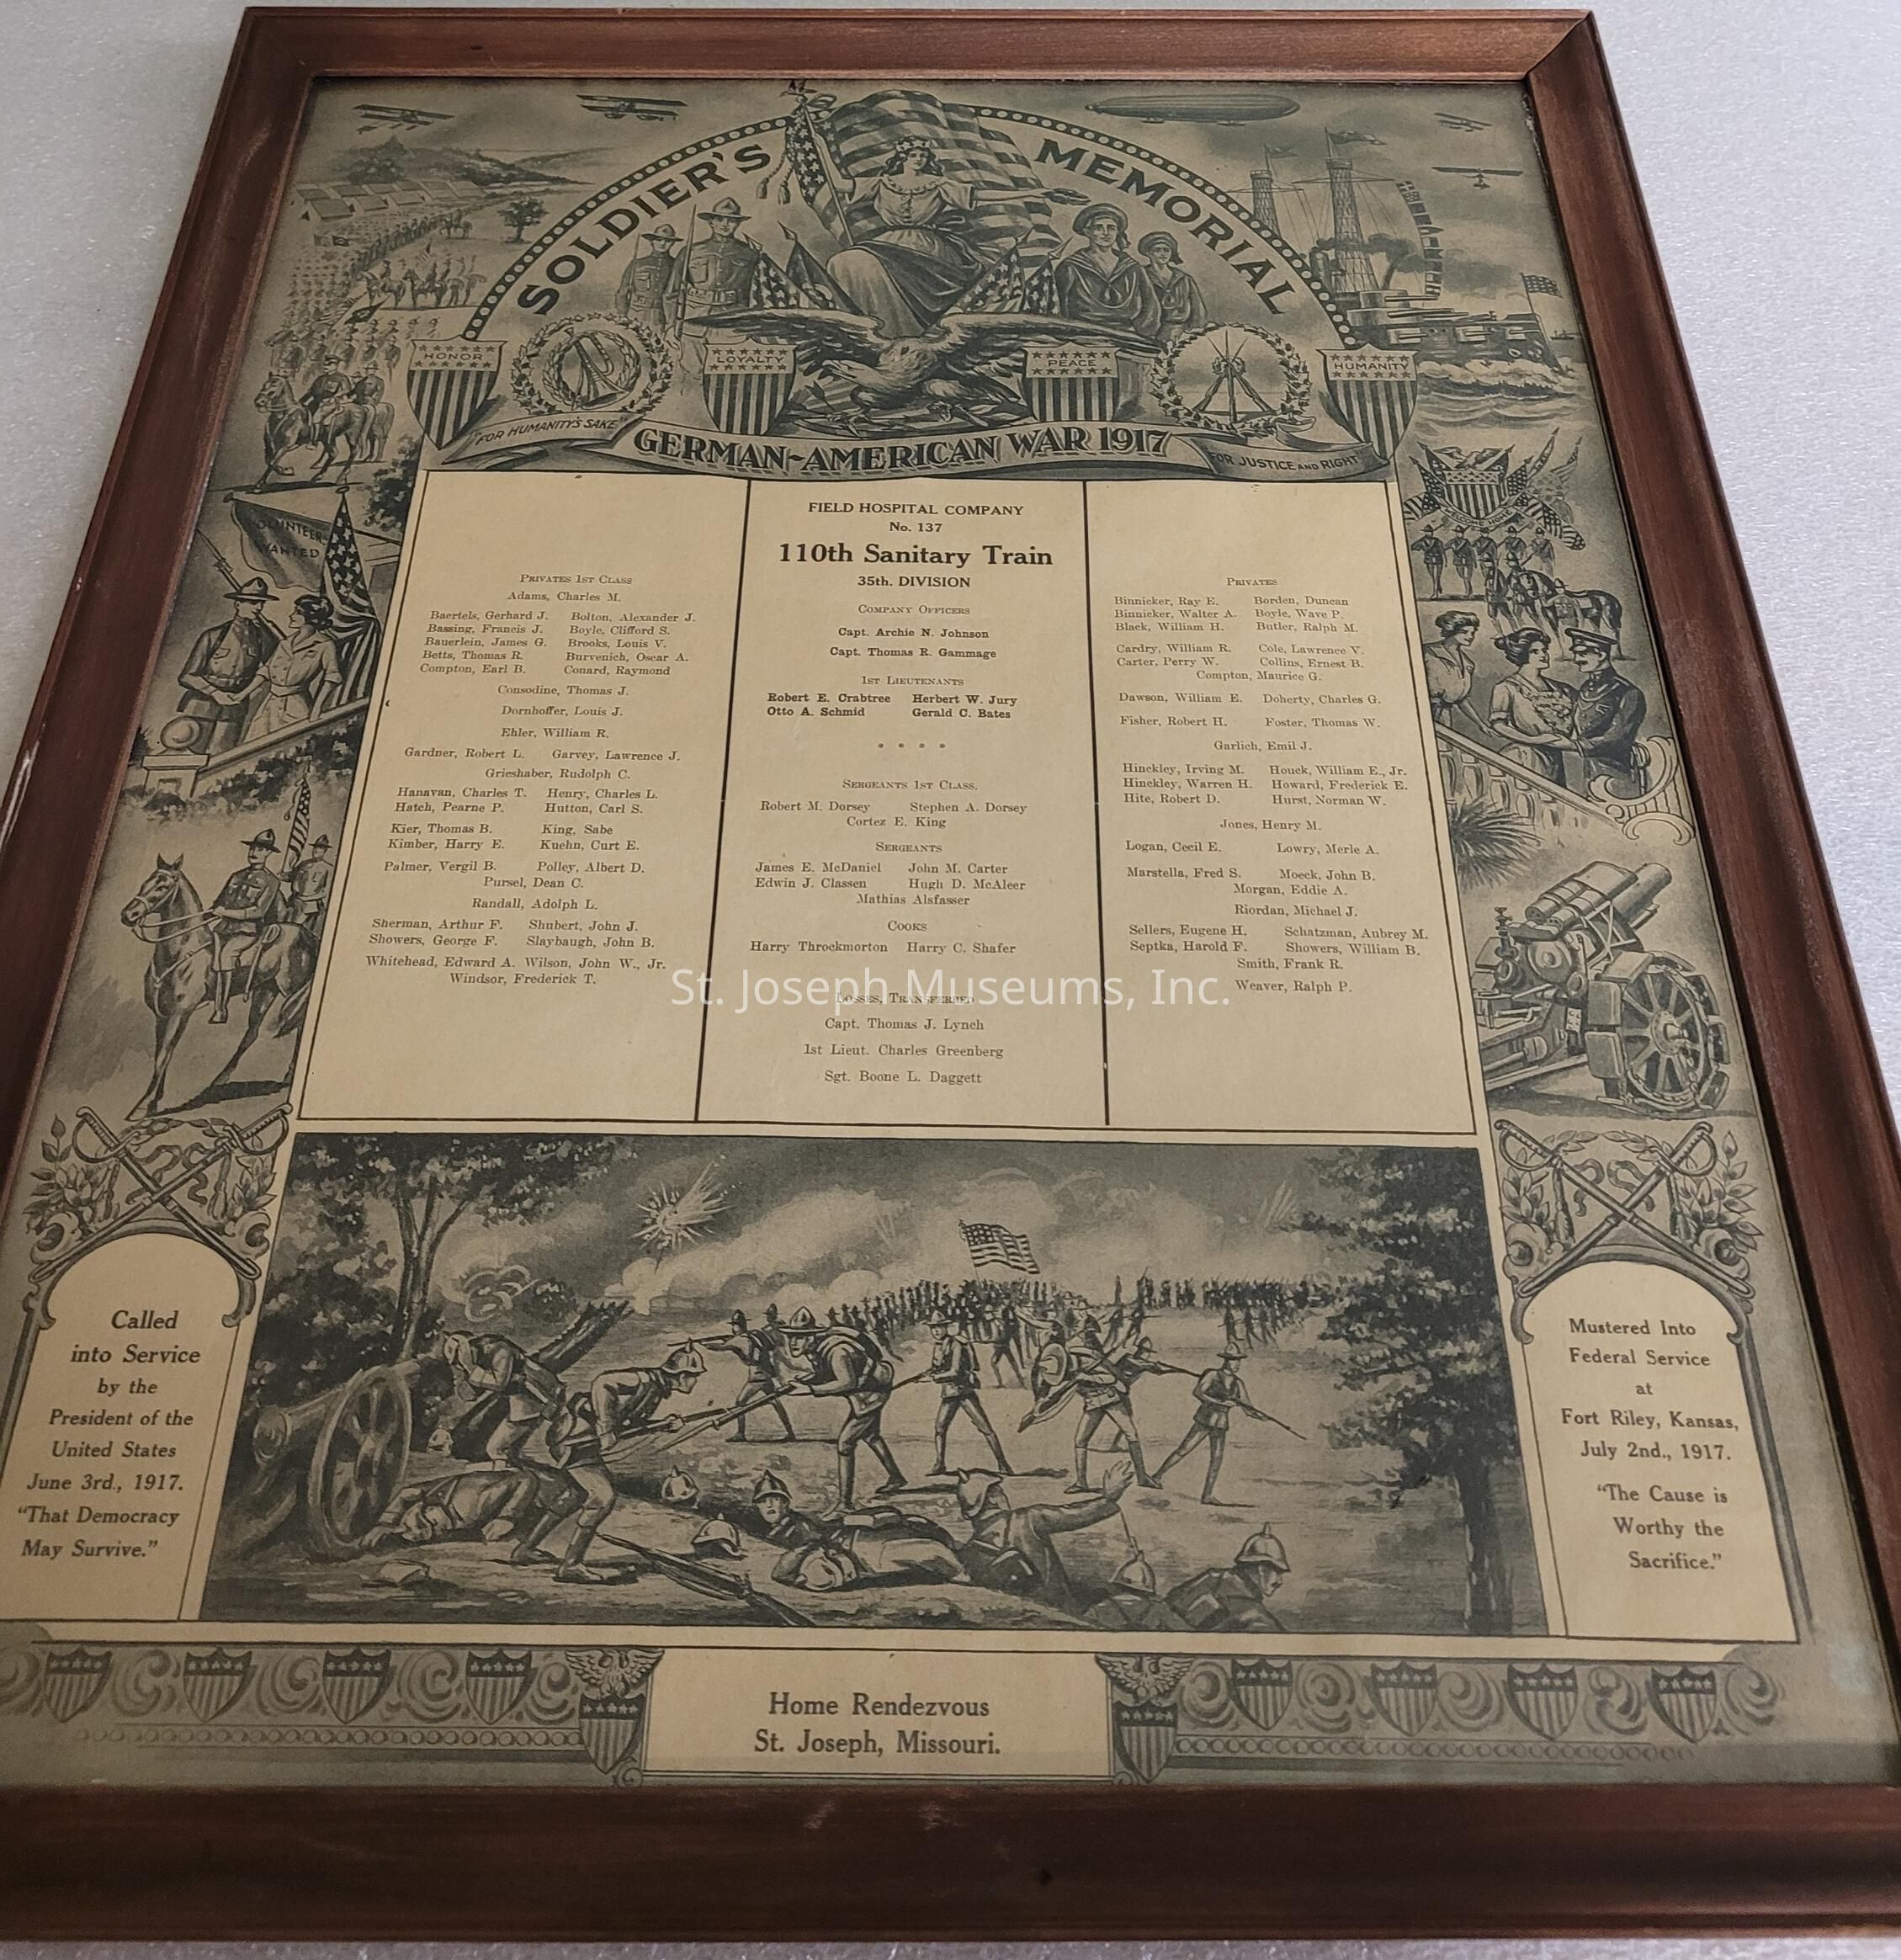 SOLDIER'S MEMORIAL
HONOR
LOYALTY
PEACE
HUMANITY
"FOR HUMANITY'S SAKE"
GERMAN-AMERICAN WAR 1917
FOR JUSTICE AND RIGHT
VOLUNTEERS
WANTED
WELCOME HOME
Privates 1st Class
Adams, Charles M.
Baertels, Gerhard J. Bolton, Alexander J.
Bassing, Francis J. Boyle, Clifford S.
Bauerlein, James G. Brooks, Louis V.
Betts, Thomas R. Burvenich, Oscar A.
Compton, Earl B. Conard, Raymond
Consodine, Thomas J.
Dornhoffer, Louis J.
Ehler, William R.
Gardner, Robert L. Garvey, Lawrence J.
Grieshaber, Rudolph C.
Hanavan, Charles T. Henry, Charles L.
Hatch, Pearne P. Hutton, Carl S.
Kier, Thomas B. King, Sabe
Kimber, Harry E. Kuehn, Curt E.
Palmer, Vergil B. Polley, Albert D.
Pursel, Dean C.
Randall, Adolph L.
Sherman, Arthur F. Shubert, John J.
Showers, George F. Slaybaugh, John B.
Whitehead, Edward A. Wilson, John W., Jr.
Windsor, Frederick T.
FIELD HOSPITAL COMPANY
No. 137
110th Sanitary Train
35th. DIVISION
Company Officers
Capt. Archie N. Johnson
Capt. Thomas R. Gammage
1st Lieutenants
Robert E. Crabtree Herbert W. Jury
Otto A. Schmid Gerald C. Bates
* * * *
Sergeants 1st Class.
Robert M. Dorsey Stephen A. Dorsey
Cortez E. King
Sergeants
James E. McDaniel John M. Carter
Edwin J. Classen Hugh D. McAleer
Mathias Alsfasser
Cooks
Harry Throckmorton Harry C. Shafer
Losses, Transferred
Capt. Thomas J. Lynch
1st Lieut. Charles Greenberg
Sgt. Boone L. Daggett
Privates
Binnicker, Ray E. Borden, Duncan
Binnicker, Walter A. Boyle, Wave P.
Black, William H. Butler, Ralph M.
Cardry, William R. Cole, Lawrence V.
Carter, Perry W. Collins, Ernest B.
Compton, Maurice G.
Dawson, William E. Doherty, Charles G.
Fisher, Robert H. Foster, Thomas W.
Garlich, Emil J.
Hinckley, Irving M. Houck, William E., Jr.
Hinckley, Warren H. Howard, Frederick E.
Hite, Robert D. Hurst, Norman W.
Jones, Henry M.
Logan, Cecil E. Lowry, Merle A.
Marstella, Fred S. Moeck, John B.
Morgan, Eddie A.
Riordan, Michael J.
Sellers, Eugene H. Schatzman, Aubrey M.
Septka, Harold F. Showers, William B.
Smith, Frank R.
Weaver, Ralph P.
St. Joseph Museums, Inc.
Called
into Service
by the
President of the
United States
June 3rd., 1917.
"That Democracy
May Survive."
Mustered Into
Federal Service
at
Fort Riley, Kansas,
July 2nd., 1917.
"The Cause is
Worthy the
Sacrifice."
Home Rendezvous
St. Joseph, Missouri.